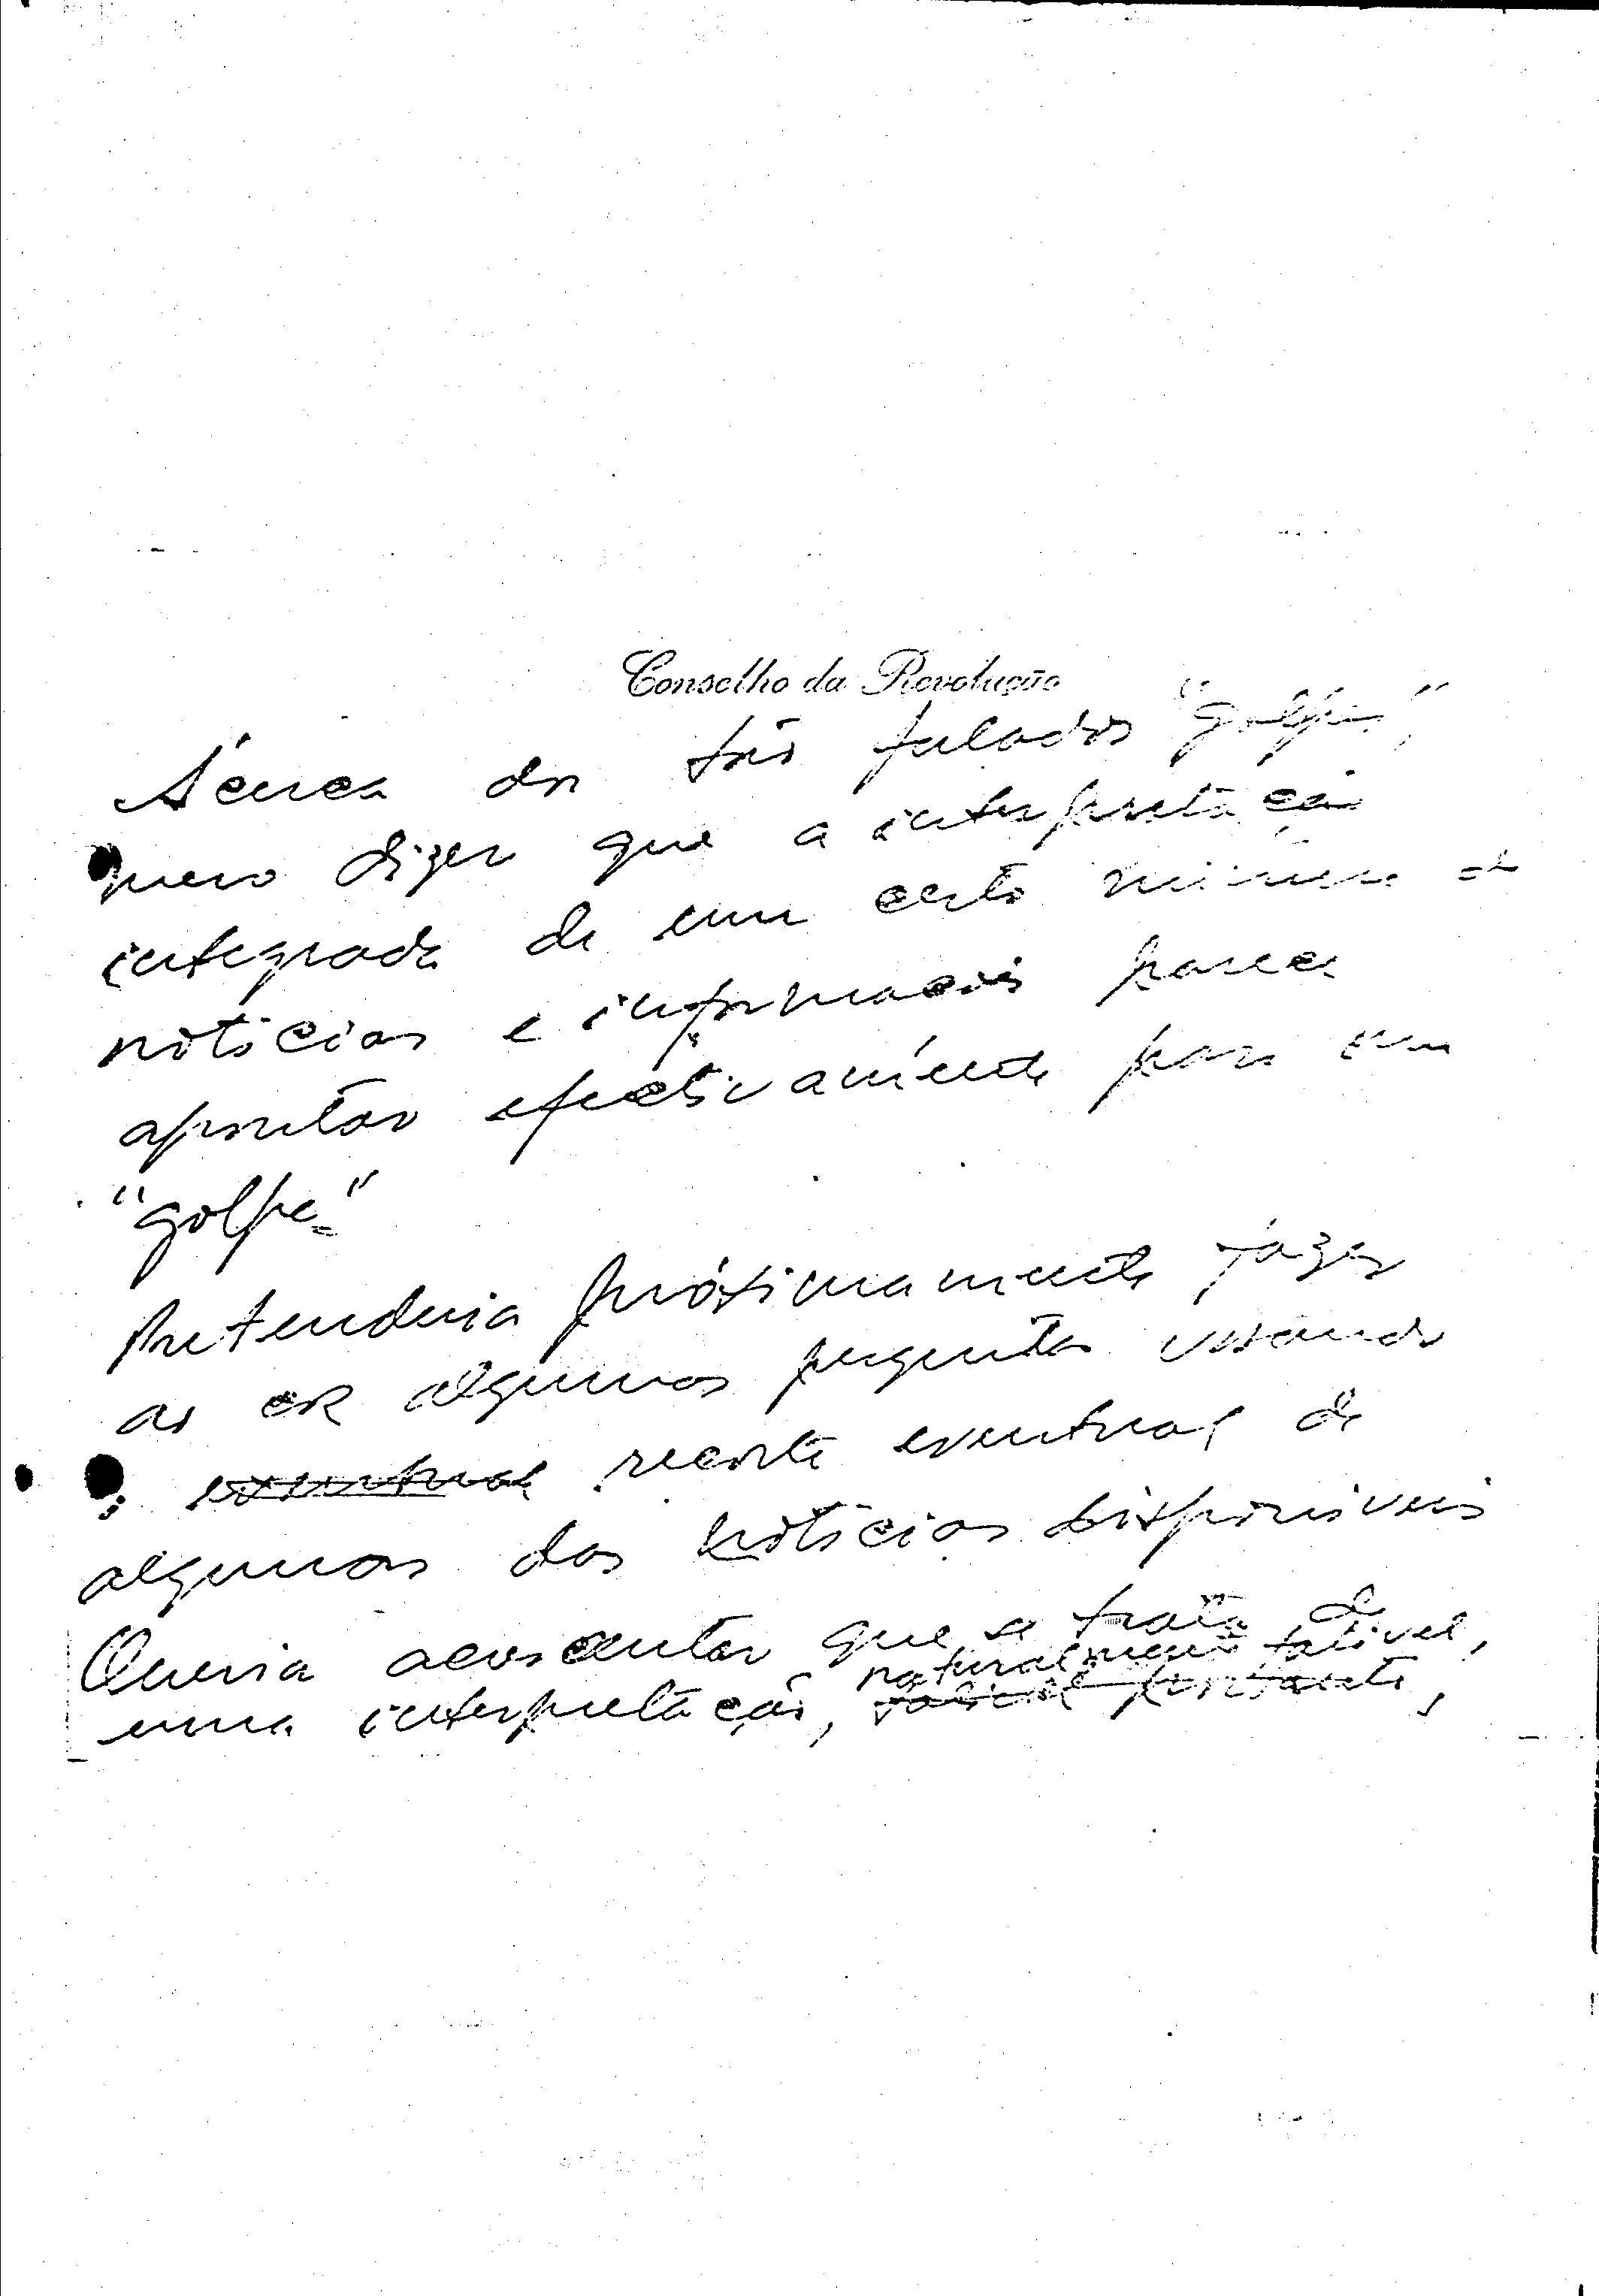 Conselho da Revolução
Àcerca dos tão falados "golpes",
quero dizer que a interpretação
integrada de um certo número de
notícias e informações parece
apontar efectivamente para um
"golpe"
Pretenderia próximamente fazer
ao CR algumas perguntas visando
o eventual recorte eventual de
algumas das notícias disponíveis
Queria acrescentar que se trata de
naturalmente falível,
uma interpretação,